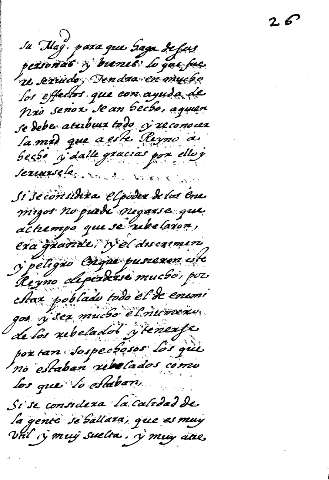 26
su Magd para que haga de sus
personas y bienes lo que fue
re servido, Tendra en mucho
los effectos que con ayuda de
Nro señor se an hecho, a quien
se debe atribuir todo y reconocer
la mrd que a este Reyno a
hecho y dalle gracias por ello y
servirsele.
Si se considera el poder de los ene
migos no puede negarse que
al tiempo que se rebelaron,
era grande, y el discrimen
y peligro en que pusieron este
Reyno de perderse mucho, por
estar poblado todo el de enemi
gos y ser mucho el numero
de los rebelados y tenerse
por tan sospechosos los que
no estaban rebelados como
los que lo estaban.
Si se considera la calidad de
la gente se hallara, que es muy
vil y muy suelta, y muy